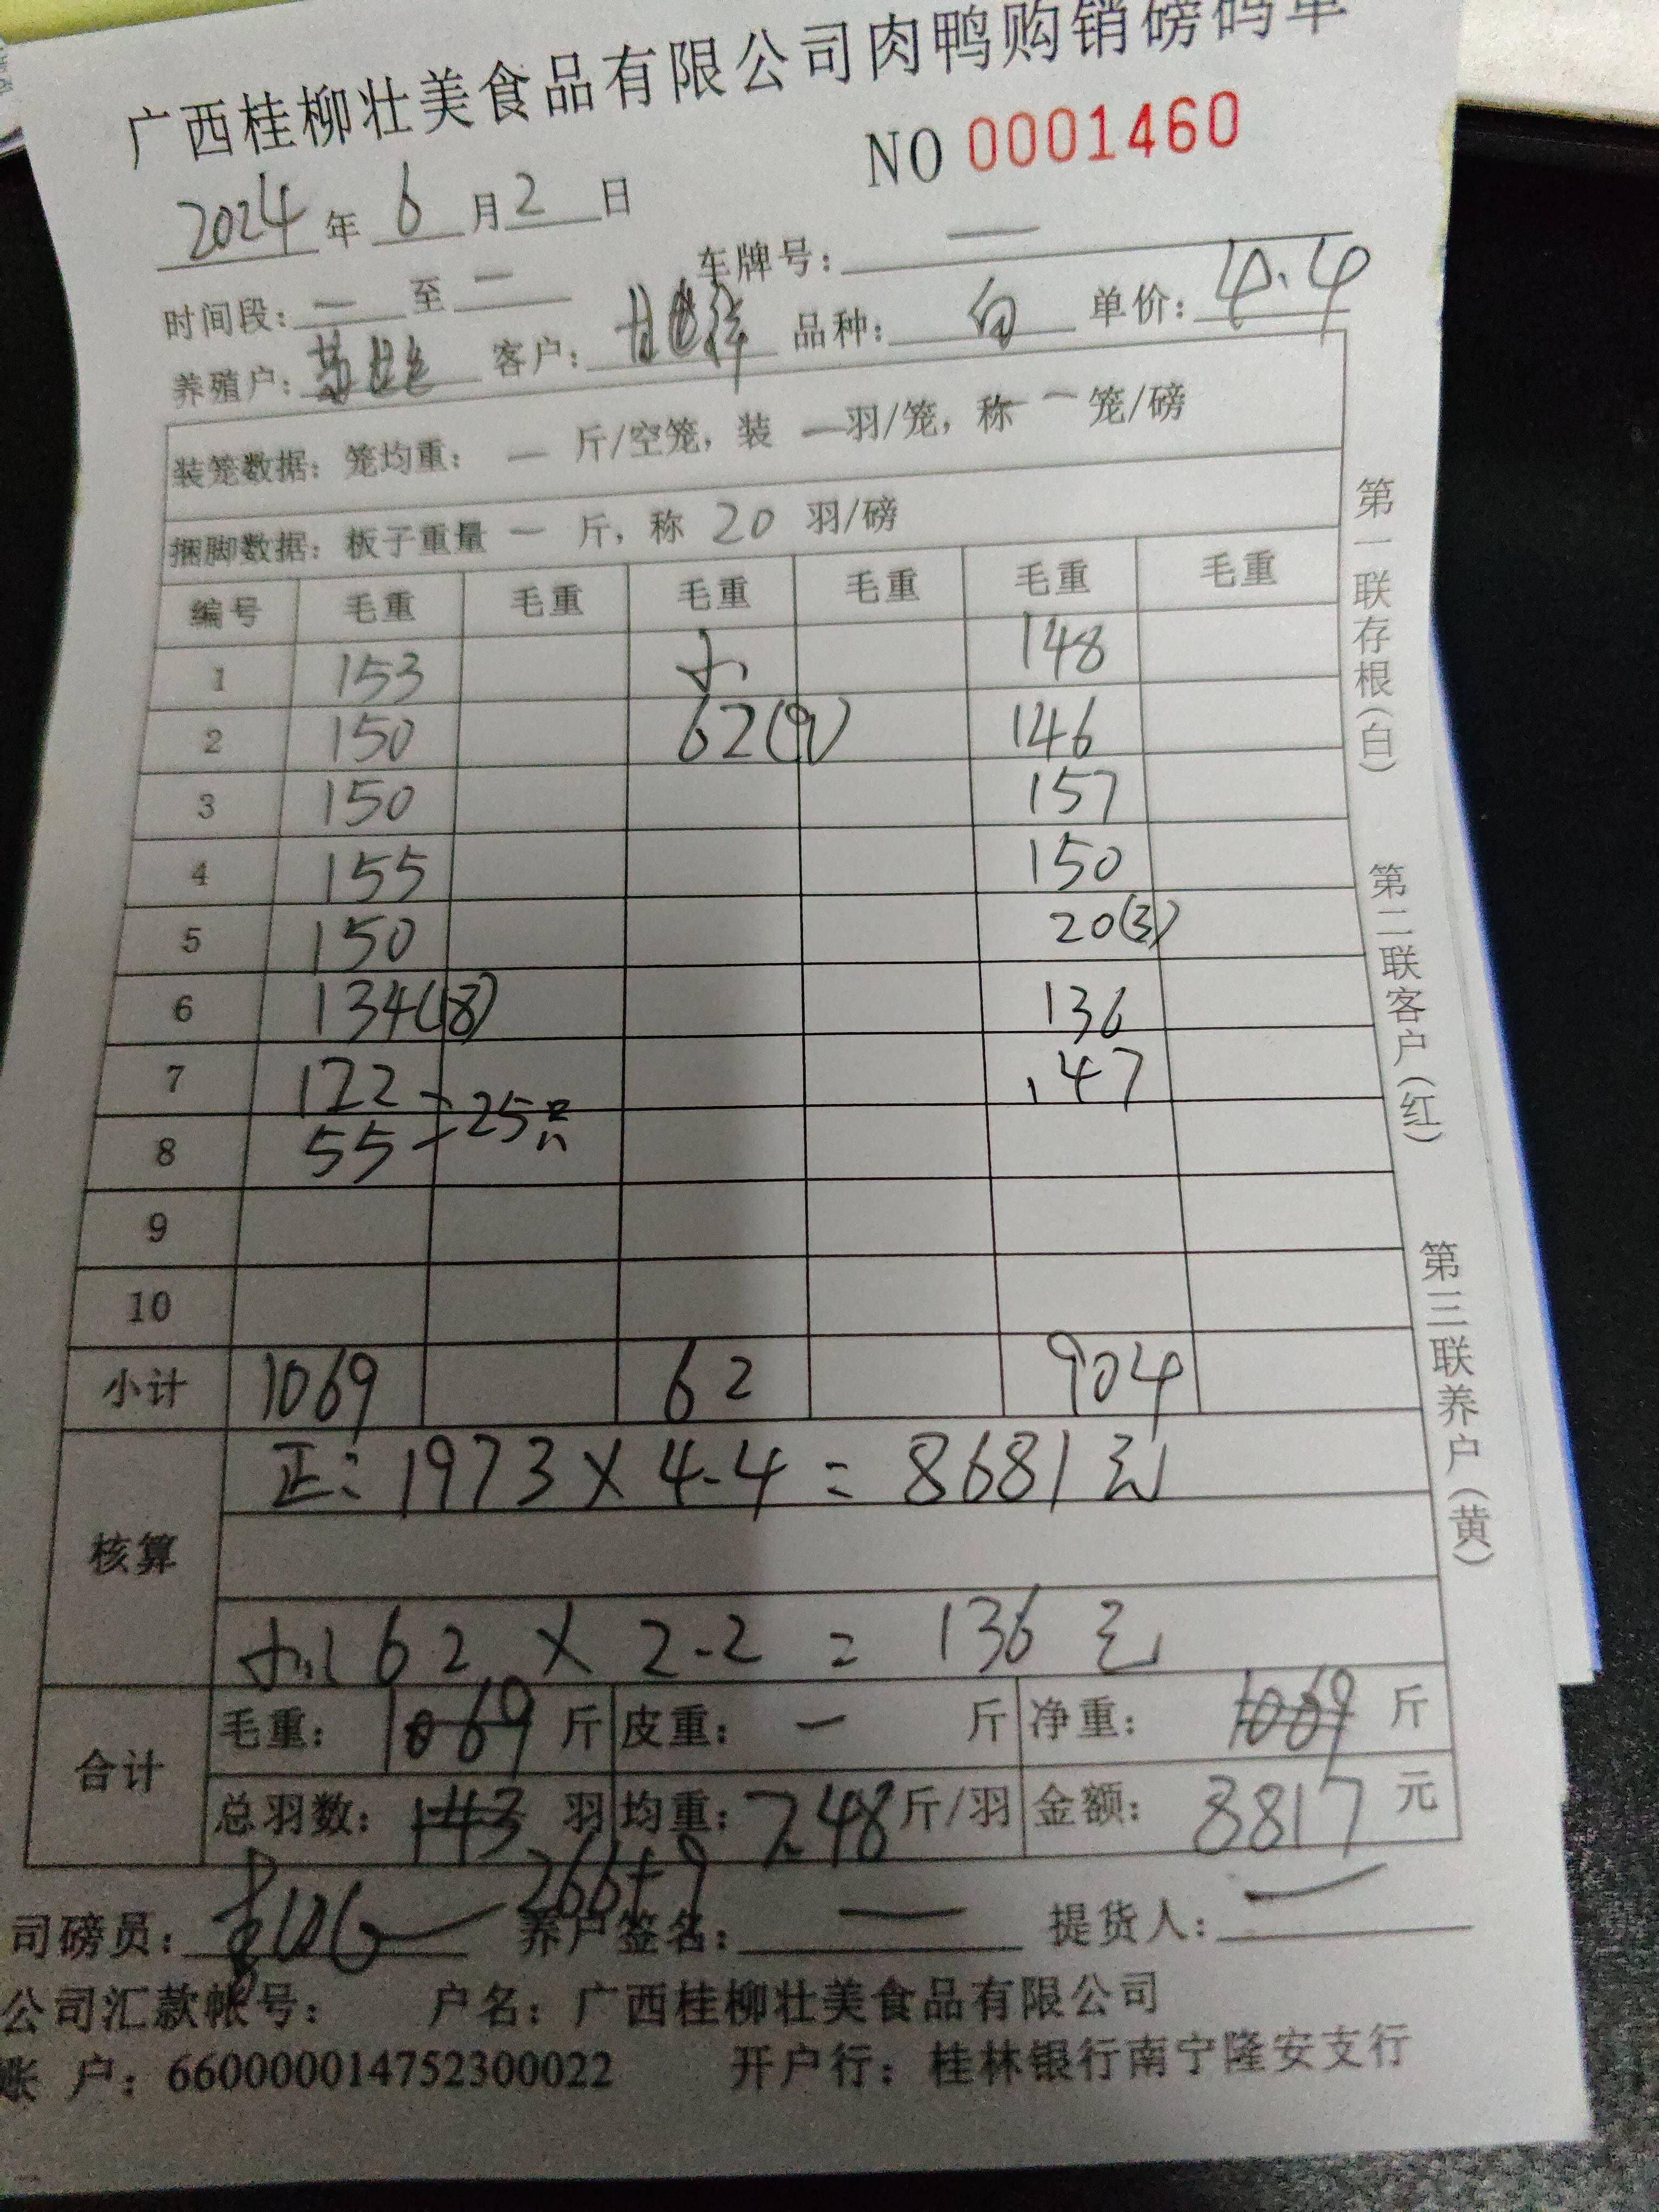 广西桂柳壮美食品有限公司肉鸭购销磅码单
NO 0001460
2024 年 6 月 2 日
车牌号： —
时间段： — 至 —
养殖户： 客户： 品种： 白 单价： 4.4
装笼数据：笼均重： — 斤/空笼，装 — 羽/笼，称 — 笼/磅
捆脚数据：板子重量 — 斤，称 20 羽/磅
编号 毛重 毛重 毛重 毛重 毛重 毛重
1 153 小 148
2 150 62(9) 146
3 150 157
4 155 150
5 150 20(3)
6 134(18) 136
7 122 147
25只
8 55
9
10
小计 1069 62 904
核算
正: 1973 × 4.4 = 8681元
小: 62 × 2.2 = 136 元
合计
毛重： 1069 斤 皮重： — 斤 净重： 1069 斤
总羽数： 143 羽 均重： 7.48 斤/羽 金额： 8817 元
266+9
司磅员： 养户签名： — 提货人： —
公司汇款帐号： 户名：广西桂柳壮美食品有限公司
账 户：660000014752300022 开户行：桂林银行南宁隆安支行
第一联存根(白)
第二联客户(红)
第三联养户(黄)